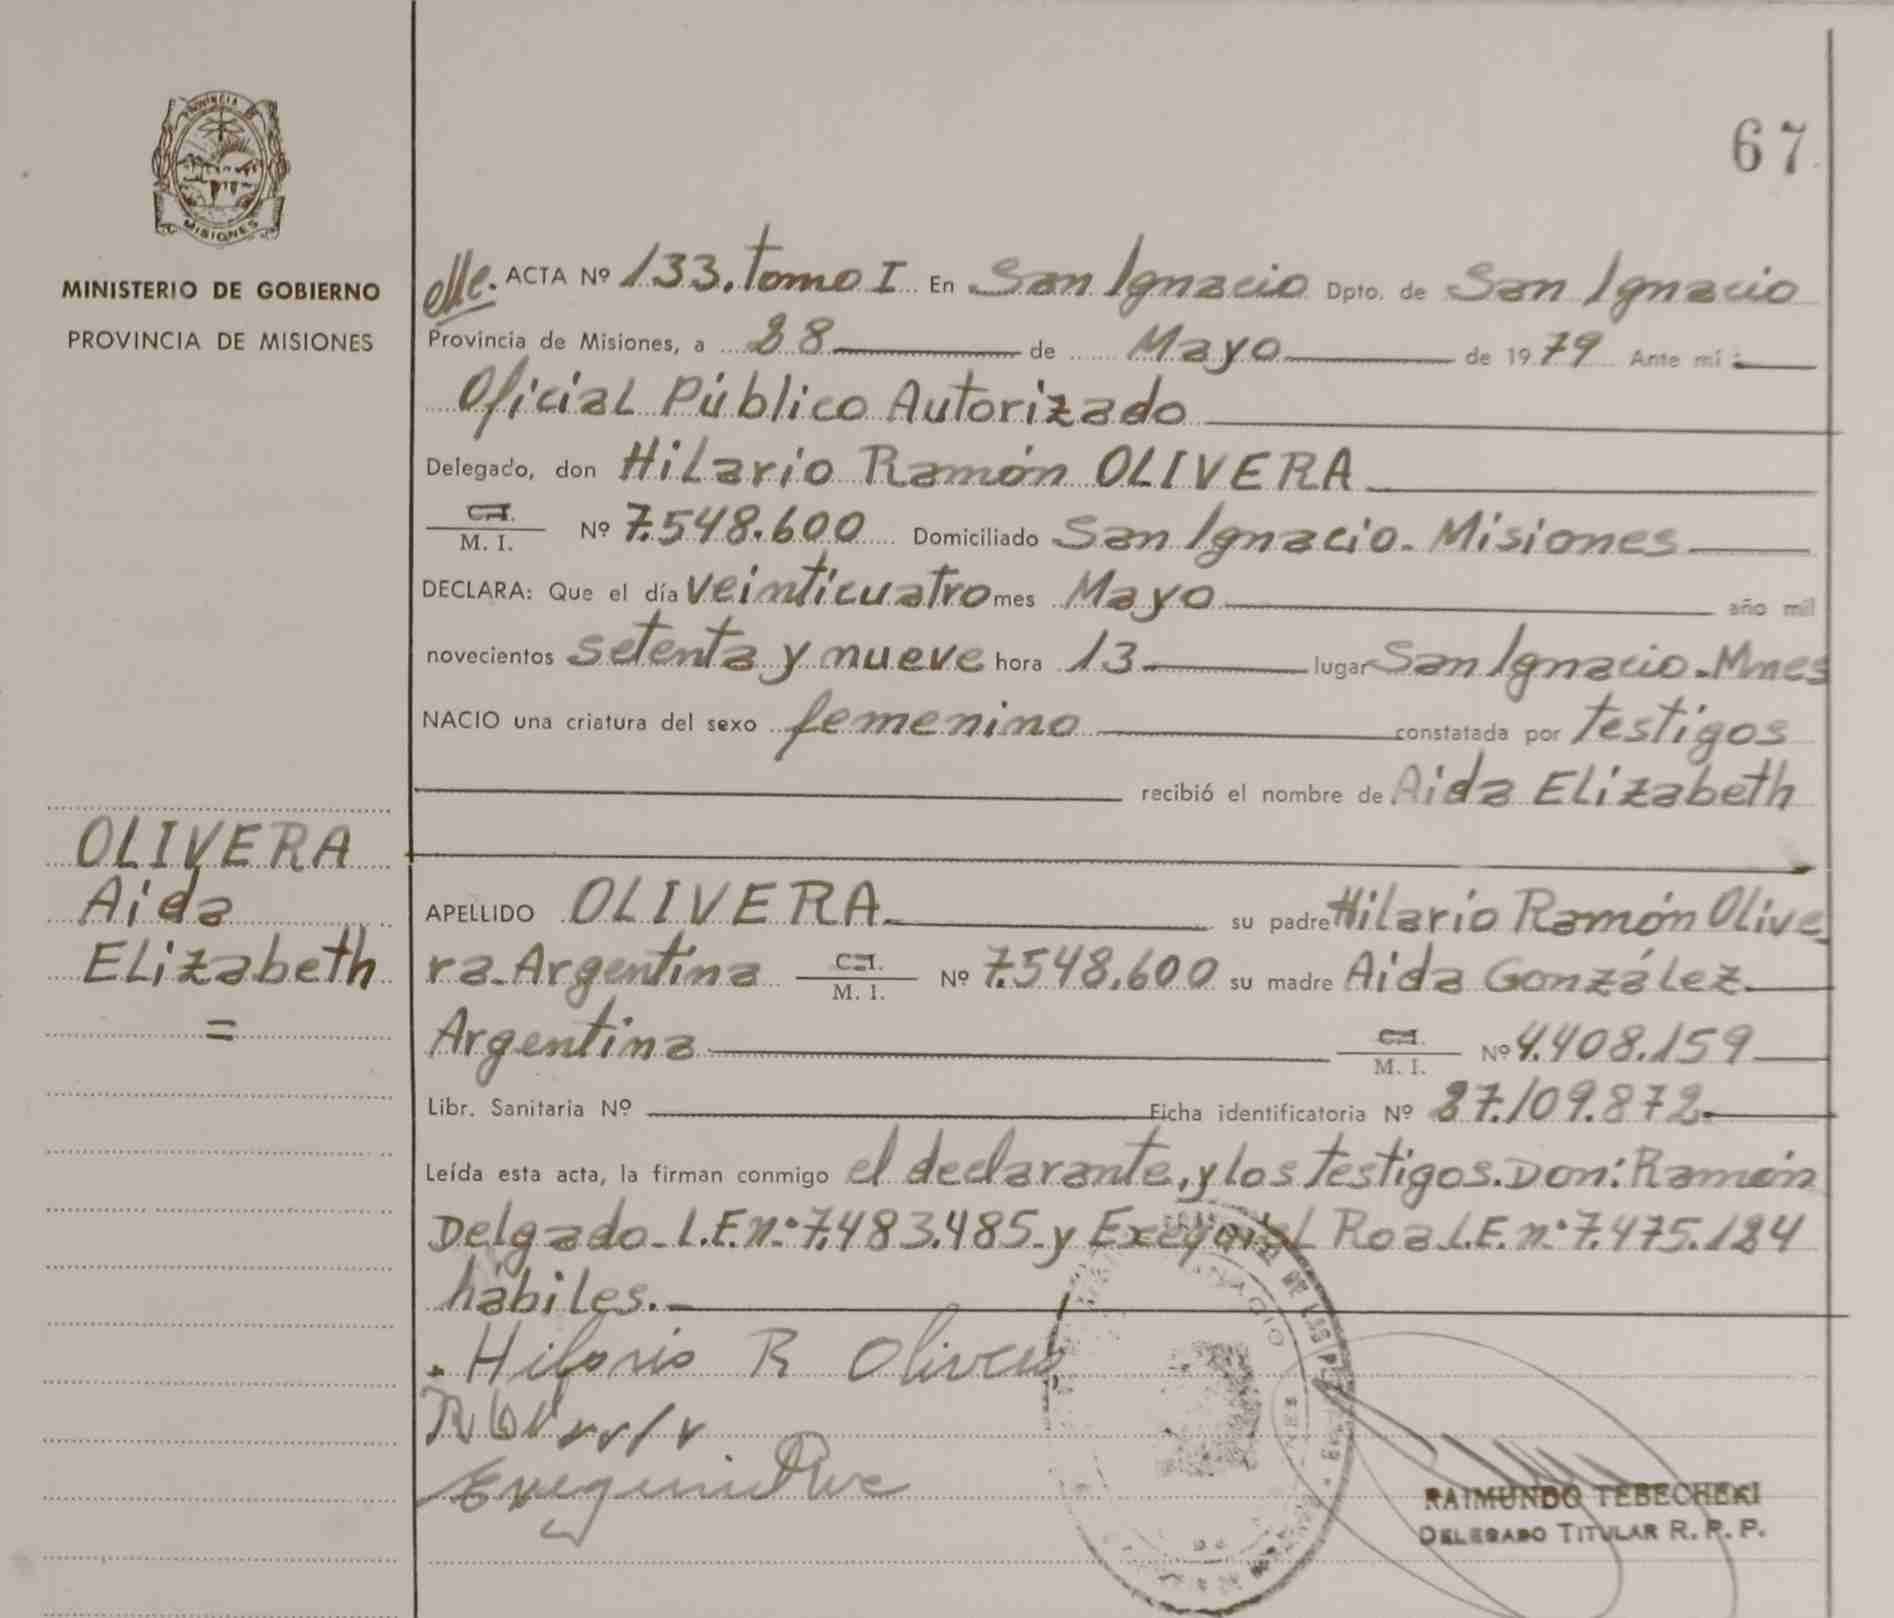 PROVINCIA DE
MISIONES
MINISTERIO DE GOBIERNO
PROVINCIA DE MISIONES
67
ACTA Nº 133. Tomo I En San Ignacio Dpto. de San Ignacio
Provincia de Misiones, a 28 de Mayo de 1979 Ante mí :
Oficial Público Autorizado
Delegado, don Hilario Ramón OLIVERA
C.I.
M. I. Nº 7.548.600 Domiciliado San Ignacio. Misiones
DECLARA: Que el día veinticuatro mes Mayo año mil
novecientos setenta y nueve hora 13 lugar San Ignacio. Mnes
NACIO una criatura del sexo femenino constatada por testigos
recibió el nombre de Aida Elizabeth
OLIVERA
Aida
Elizabeth
=
APELLIDO OLIVERA su padre Hilario Ramón Olive
ra. Argentina C.I. M. I. Nº 7.548.600 su madre Aida González
Argentina C.I. M. I. Nº 4.408.159
Libr. Sanitaria Nº Ficha identificatoria Nº 27.109.872.
Leída esta acta, la firman conmigo el declarante, y los testigos. Don: Ramón
Delgado. L.E. n.º 7.483.485. y Roa L.E. n.º 7.475.124
hábiles.
Hilario R Olivera
RAIMUNDO TEBECHEKI
DELEGADO TITULAR R. P. P.